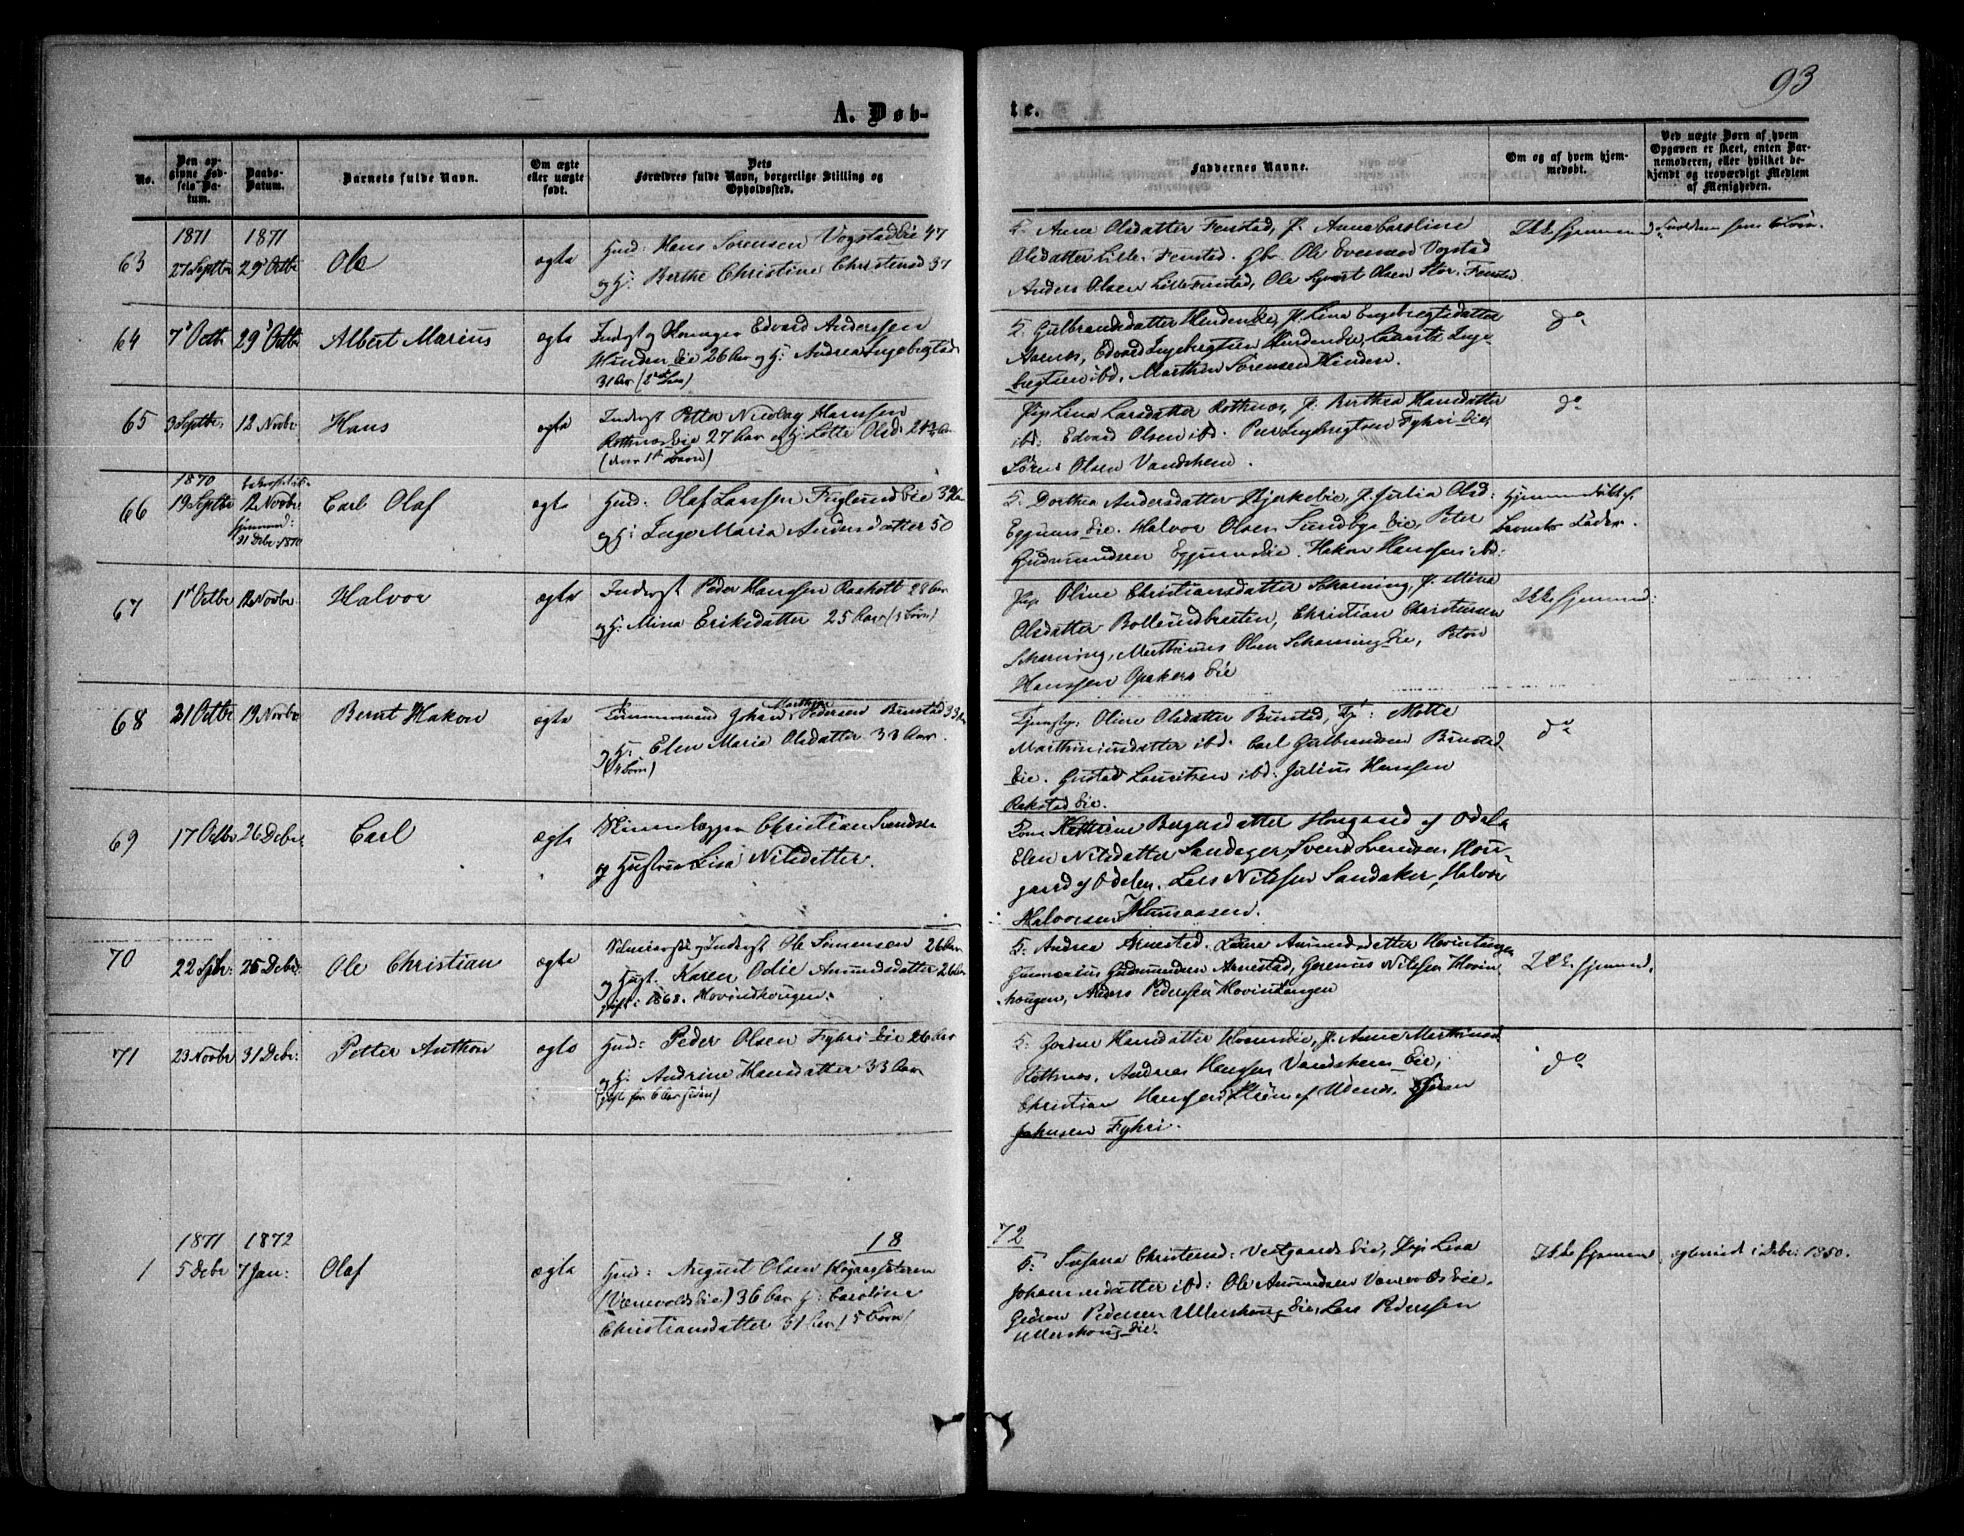 93
A. Døb-
te.
No.
Den op-
givne Fød-
sels-Da-
tum.
Daabs-
Datum.
Barnets fulde Navn.
Om ægte
eller uægte
født.
Dets
Forældres fulde Navn, borgerlige Stilling og
Opholdssted.
Faddernes Navne.
Om og af hvem hjem-
medøbt.
Ved uægte Børn af hvem
Opgaven er skeet, enten Bar-
nemoderen, eller hvilket be-
kjendt og troværdigt Medlem
af Menigheden.
1871 1871
63 27 Septbr 29 Octbr Ole ægte
Hans Sorensen Vogstadeie 47
og H: Berthe Christine Christensd 37
Anne Olsdatter Fenstad, P. Anna Caroline
Olsdatter Lille-Fenstad. Gbr. Ole Evensen Vogstad
Anders Olsen Lille Fenstad, Ole Syvert Olsen Stor-Fenstad
Ikke hjemmed
64 7 Octb 29 Octbr Albert Marius ægte
Inderst og Edvard Anderssen
Hinden Eie 26 Aar og H: Andrea Ingebrigtsd
31 Aar
G. Gulbrandsdatter Hinden Eie, P. Lina Engebregtsdatter
Aarnes, Edvard Ingebrigtsen Hinden Eie, Lauritz Inge-
bregtsen ibd, Marthin Sørensen Hinden.
do
65 3 Septbr, 12 Novbr Hans ægte
Inderst Petter Nicolay Hanssen
Rothnes Eie 27 Aar og H: Lotte Olsd: 24 Aar
(deres 1ste Barn)
Pige Lina Larsdatter Rothnes, P. Berthea Hansdatter
ibd: Edvard Olsen ibd. Peer Ingebrigtsen Fyhri Eie,
Sørens Olsen Vandshem.
do
1870
66 19 Septbr 12 Novbr Carl Olaf ægte
hjemmed:
31 Debr: 1870
Hmd: Olaf Larssen Fuglundeie 32
og H: Inge Maria Andersdatter 50
G. Dorthea Andersdatter Bjerkeeie, P. Julia Olsd:
Eggums Eie. Halvor Olsen Sundbye Eie, Peter
Gudmundsen Eggum Eie. Hakon Hanssen ibd:
Hjemmedøbt af
Barnets Fader.
67 1ste Octbr 12 Novbr Halvor ægte
Inderst Peder Hanssen Raskott 28 Aar
og H: Mina Eriksdatter 25 Aar (3 Børn)
Pige Oline Christiansdatter Skarning, P. Mina
Olsdatter Bollerudbraaten, Christian Christensen
Skarning, Marthinus Olsen Skarnings Eie, Peter
Hanssen Opakers Eie
Ikke hjemmed:
68 31 Octbr 19 Novbr Bernt Hakon ægte
Tømmermand Johan Pedersen Bunstad 33 Aar
og H: Elen Maria Olsdatter 33 Aar.
(4 Børn)
Oline Olsdatter Bunstad, Mette
Marthiniusdatter ibd. Carl Gulbrandsen Bunstad
Eie. Gustad Lauritsen ibd: Julius Hanssen
Rakstad Eie.
do
69 17 Octbr 26 Debr Carl ægte
Christian Svendsen
og Hustrue Lisa Nilsdatter.
Kone Kathrine Hougaard af Odalen
Elen Nilsdatter Sandager, Svend Svendsen Hou-
gaard af Odalen. Lars Nilssen Sandaker, Halvor
Halvorsen Huusaasen.
70 22 25 Debr: Ole Christian ægte
Inderst Ole Simensen 26 Aar
og Hust. Karen Odie Amundsdatter 26 Aar
gift: 1868. Hovindhougen.
G: Andrea Arnestad. Laure Amundsdatter Hovinhougen
Gudmundsen Arnestad, Gerenus Nilssen Hovin
hougen, Anders Pederssen Hovinhougen
Ikke hjemmed.
71 23 Novbr 31 Debr: Petter Anthon ægte
Hmd: Peder Olsen Fyhri Eie 26 Aar
og H: Andrine Hansdatter 33 Aar
(gifte for 6 Aar siden)
G: Hansdatter P. Anne Marthinsd
Rothnes, Andreas Hanssen Vandshem Eie,
Christian Hanssen af Udenes. Johan
Johnsen Fyhri.
do
18 72
1871 1872
1 5 Debr 7 Jan: Olaf ægte
Hmd: August Olsen
(Værvolds Eie) 36 Aar H: Caroline
Christiansdatter 31 Aar (5 Børn)
G: Susana Christensd: Vestgaards Eie, Pige Lisa
Johannesdatter ibd: Ole Amundsen Værvolds Eie.
Gedion Pedersen Ullershoug Eie, Lars Pederssen
Ullershoug Eie.
Ikke hjemmed i Debr: 1850.